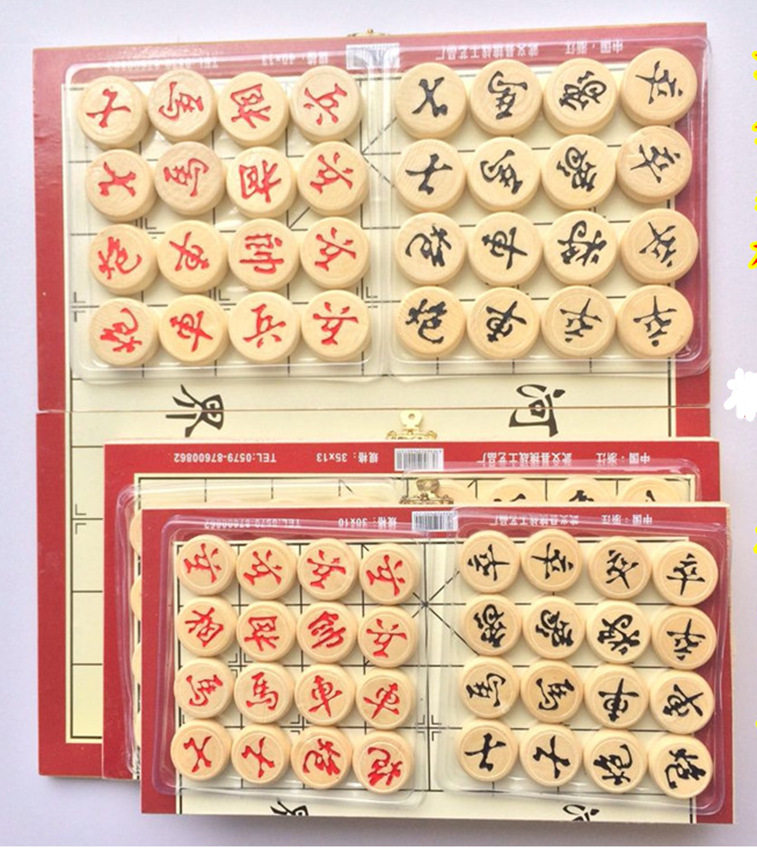 中国：浙江 武义县挑战工艺品厂 规格：40x13
士 馬 相 兵 士 馬 象 卒
士 馬 相 兵 士 馬 象 卒
炮 車 帥 兵 炮 車 将 卒
炮 車 兵 兵 炮 車 卒 卒
河 界
中国：浙江 武义县挑战工艺品厂 规格：35x13 TEL:0579-87600862
中国：浙江 武义县挑战工艺品厂 规格：30x10 TEL:0579-87600862
兵 兵 兵 兵 卒 卒 卒 卒
相 相 帥 兵 象 象 将 卒
馬 馬 車 車 馬 馬 車 車
士 士 炮 炮 士 士 炮 炮
河 界